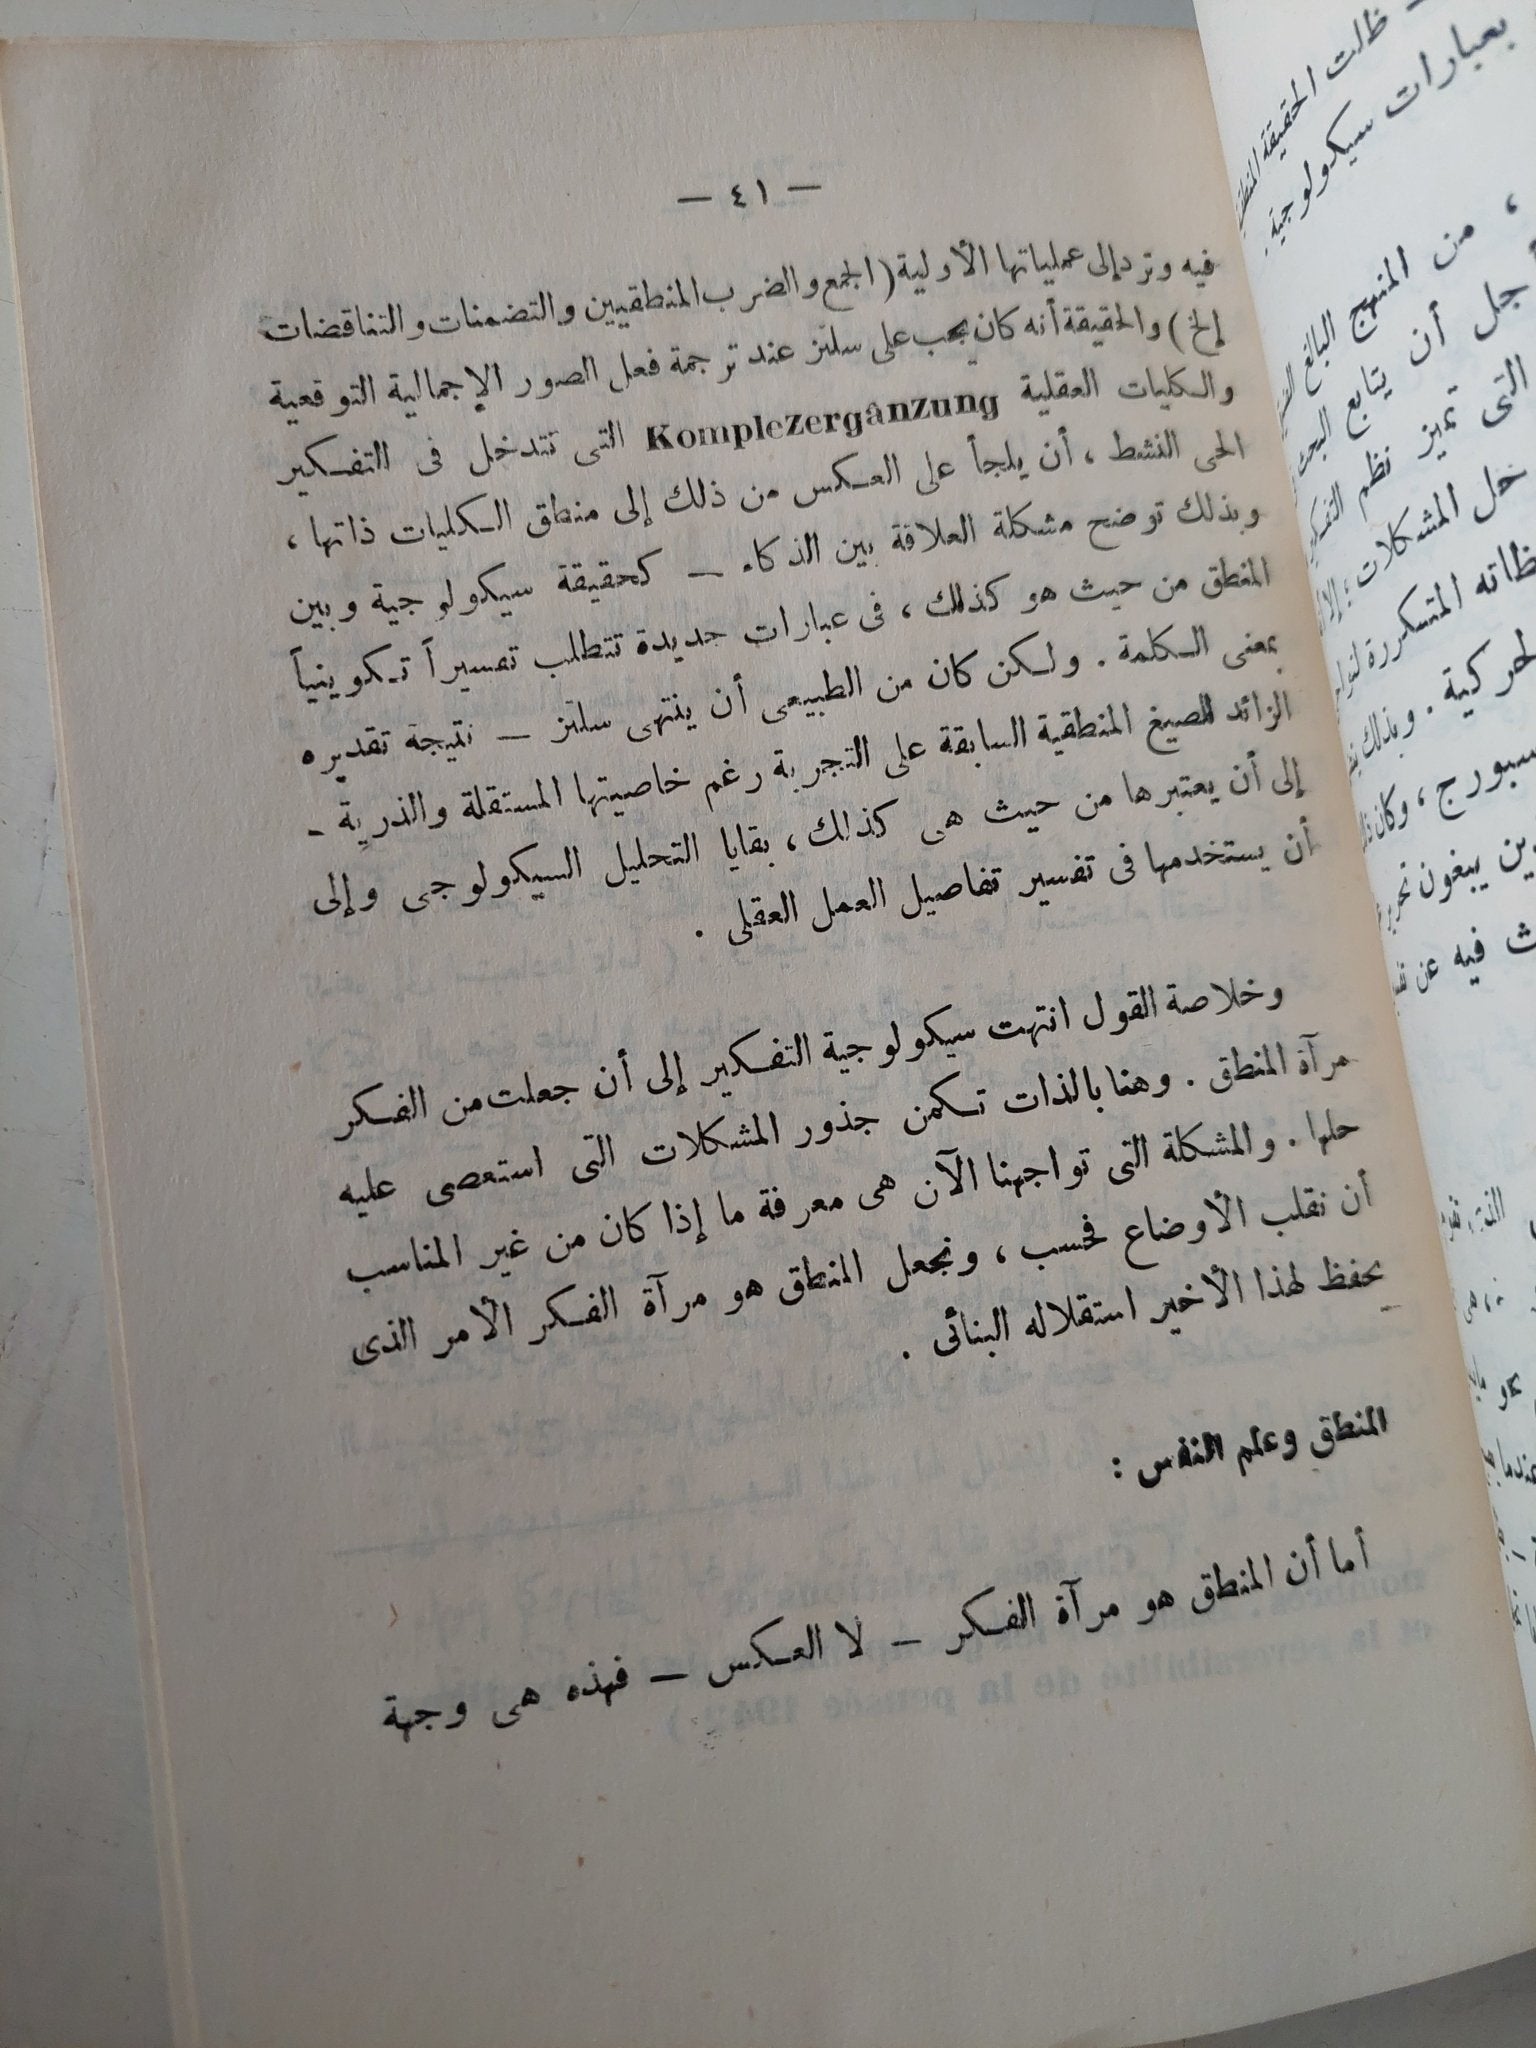 — ٤١ —
فيه وترد إلى عملياتها الأولية (الجمع والضرب المنطقيين والتضمنات والتناقضات
إلخ) والحقيقة أنه كان يجب على سلتز عند ترجمة فعل الصور الإجمالية التوقعية
والكليات العقلية Komplezergânzung التى تتدخل فى التفكير
الحى النشط ، أن يلجأ على العكس من ذلك إلى منطق الكليات ذاتها ،
وبذلك توضح مشكلة العلاقة بين الذكاء — كحقيقة سيكولوجية وبين
المنطق من حيث هو كذلك ، فى عبارات جديدة تتطلب تفسيراً تكوينياً
بمعنى الكلمة . ولكن كان من الطبيعى أن ينتهى سلتز — نتيجة تقديره
الزائد للصيغ المنطقية السابقة على التجربة رغم خاصيتها المستقلة والذرية -
إلى أن يعتبرها من حيث هى كذلك ، بقايا التحليل السيكولوجى وإلى
أن يستخدمها فى تفسير تفاصيل العمل العقلى .
وخلاصة القول انتهت سيكولوجية التفكير إلى أن جعلت من الفكر
مرآة المنطق . وهنا بالذات تكمن جذور المشكلات التى استعصى عليه
حلها . والمشكلة التى تواجهنا الآن هى معرفة ما إذا كان من غير المناسب
أن نقلب الأوضاع فحسب ، ونجعل المنطق هو مرآة الفكر الأمر الذى
يحفظ لهذا الأخير استقلاله البنائى .
المنطق وعلم النفس :
أما أن المنطق هو مرآة الفكر — لا العكس — فهذه هى وجهة
ظلت الحقيقة
بعبارات سيكولوجية .
، من المنهج البالغ
جل أن يتابع البحث
التى تميز نظم
المشكلات ؛
المتكررة
. وبذلك
، وكان
يبغون
فيه عن